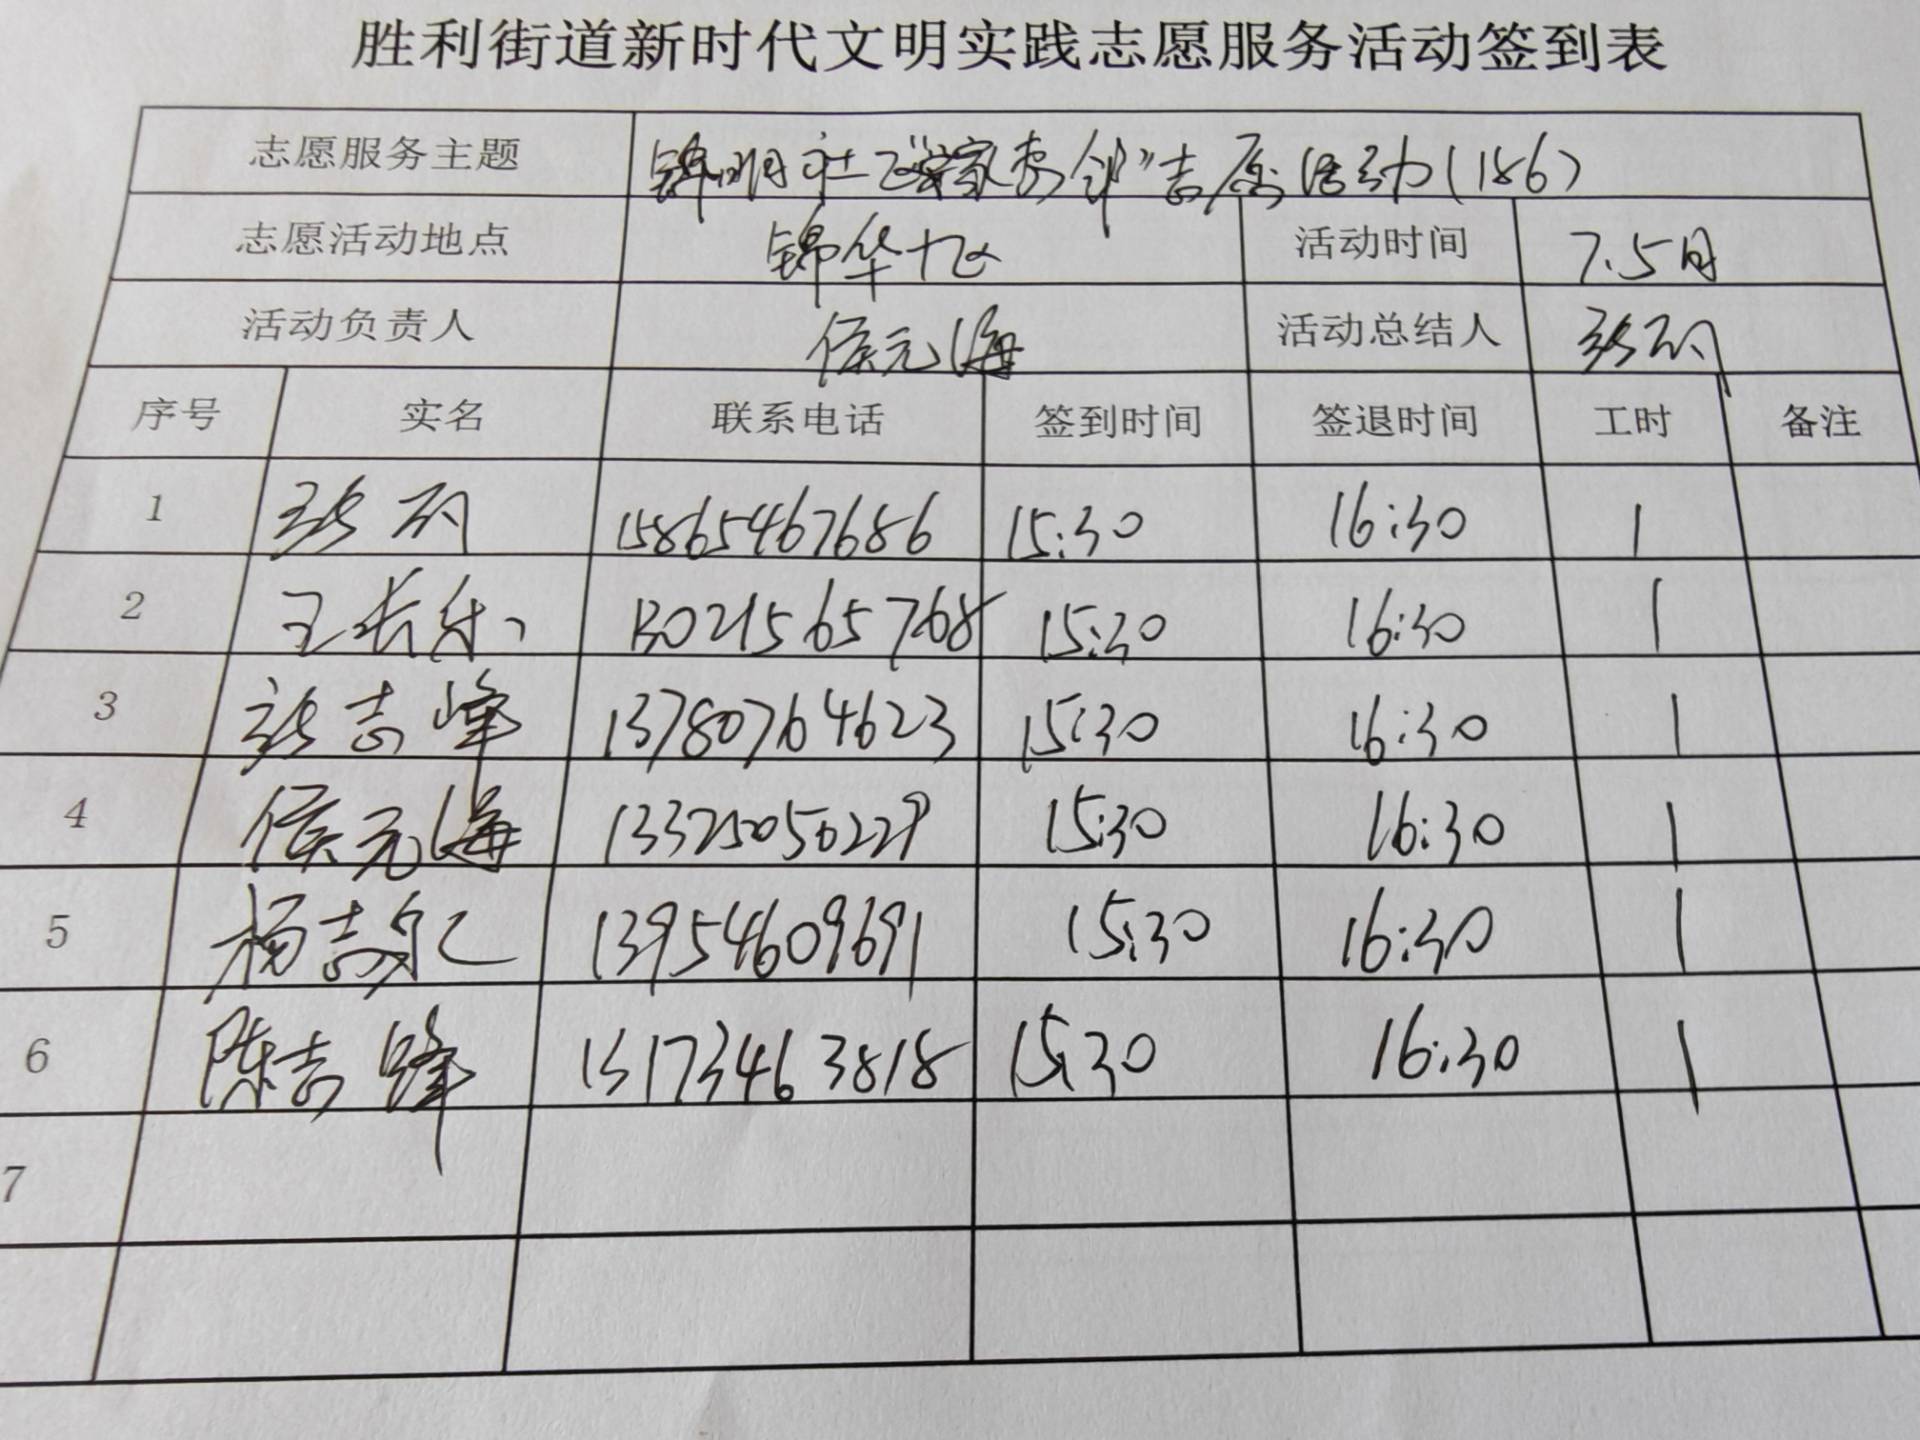 胜利街道新时代文明实践志愿服务活动签到表
志愿服务主题 锦明社区“安家美邻”志愿活动(186)
志愿活动地点 锦华十区 活动时间 7.5日
活动负责人 侯元海 活动总结人 张丽
序号 实名 联系电话 签到时间 签退时间 工时 备注
1 张丽 15865467686 15:30 16:30 1
2 王长乐 13021565768 15:30 16:30 1
3 张志峰 13780764623 15:30 16:30 1
4 侯元海 13325050229 15:30 16:30 1
5 杨志 13954609691 15:30 16:30 1
6 陈志峰 13173463818 15:30 16:30 1
7